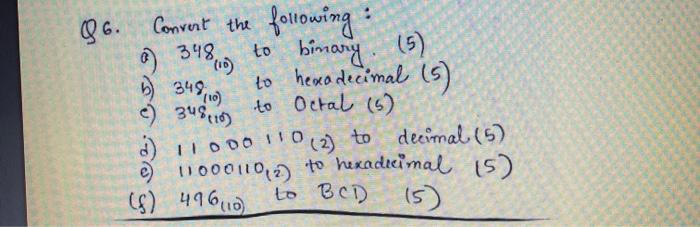 Q6. Convert the following:
a) 348(10) to binary. (5)
b) 348(10) to hexadecimal (5)
c) 348(10) to Octal (5)
d) 11000110(2) to decimal (5)
e) 11000110(2) to hexadecimal (5)
(f) 496(10) to BCD (5)